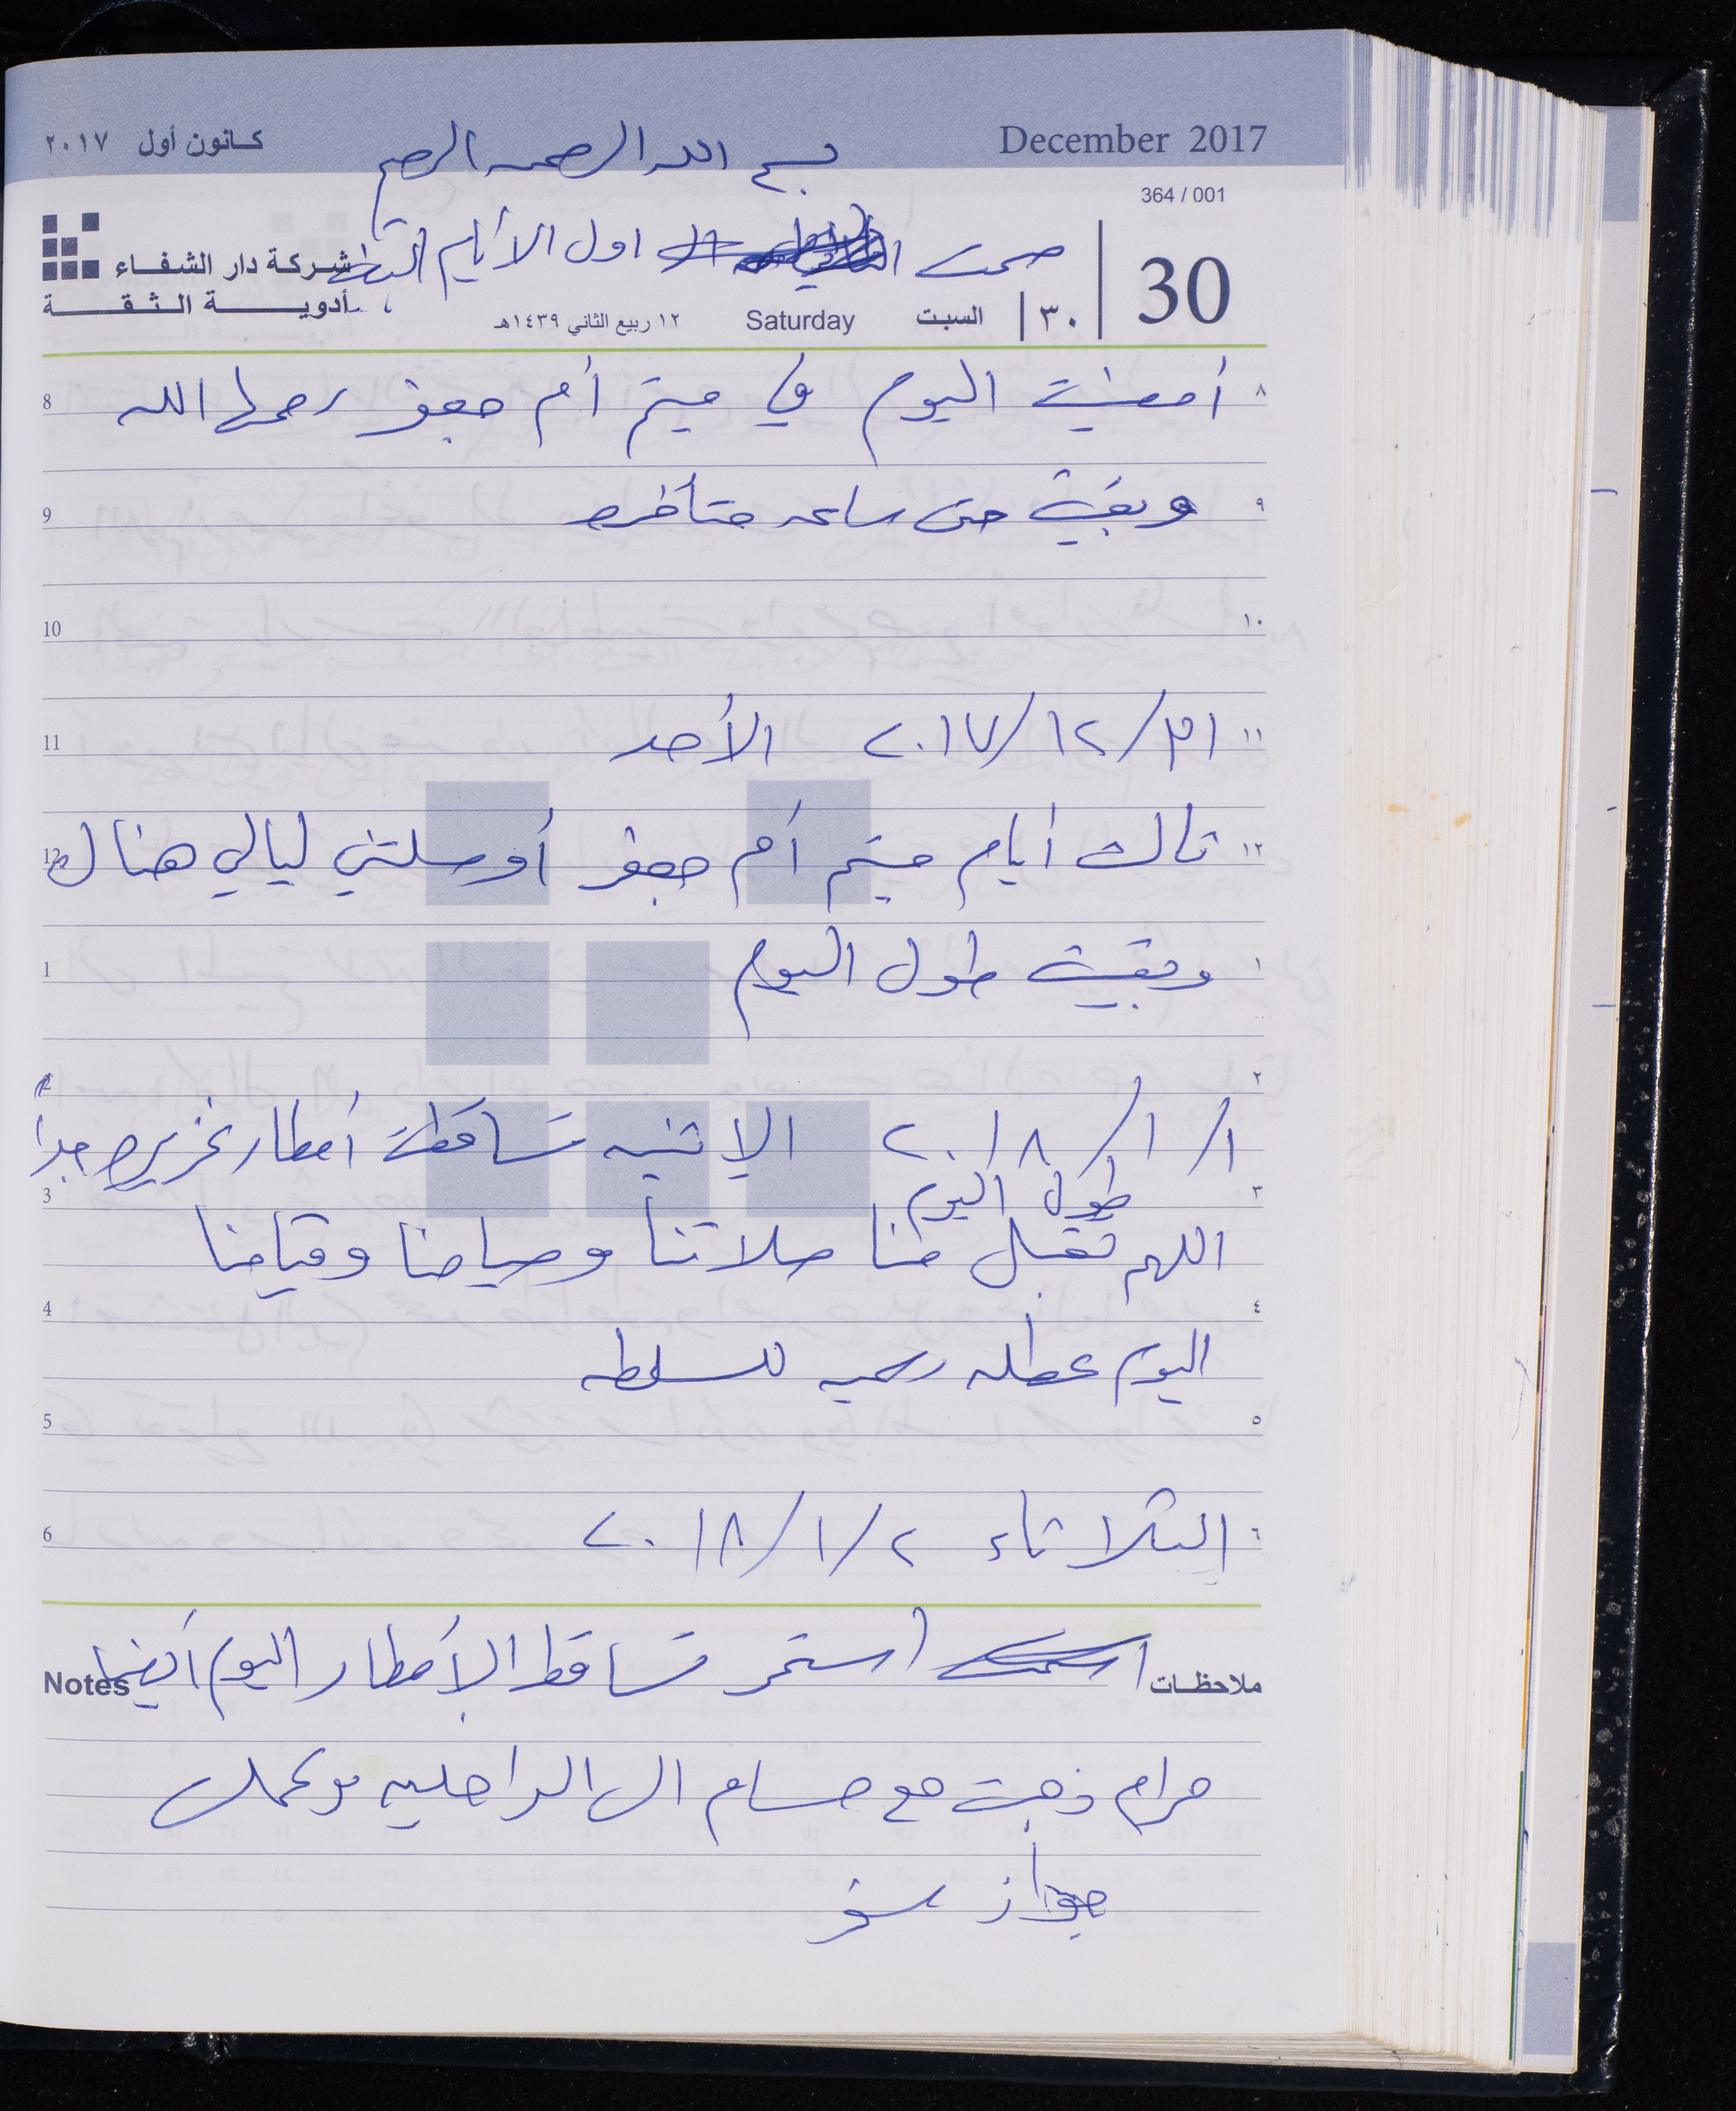 كانون أول ٢٠١٧ December 2017
بسم الله الرحمن الرحيم
364 / 001
صمت اول الأيام البيض
شركة دار الشفاء
أدوية الثقة
30 ٣٠ السبت Saturday ١٢ ربيع الثاني ١٤٣٩هـ
8 أمضيت اليوم في ميتم أم جعفر رحمها الله ٨
9 وبقيت حتى ساعه متأخره ٩
10 ١٠
11 ٢٠١٧/١٢/٣١ الأحد ١١
12 ثالث أيام ميتم أم جعفر أوصلتني ليالي هناك ١٢
1 وبقيت طول اليوم ١
2 ٢
٢٠١٨/١/١ الإثنين تساقطت أمطار غزيره جدا
3 طول اليوم ٣
اللهم تقبل منا صلاتنا وصيامنا وقيامنا
4 ٤
اليوم عطله رسميه للسلطه
5 ٥
6 الثلاثاء ٢٠١٨/١/٢ ٦
Notes استمر تساقط الأمطار اليوم أيضا ملاحظات
مرام ذهبت مع حسام الى الداخليه لعمل
جواز سفر